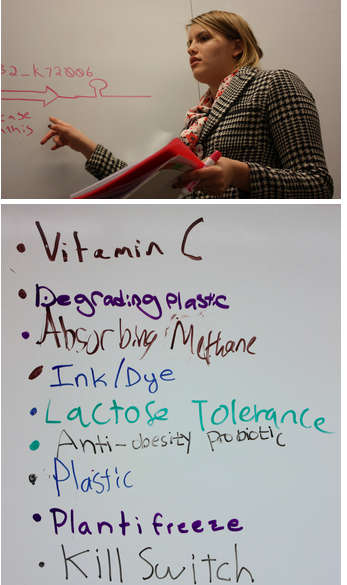 32_K72006
this
• Vitamin C
• Degrading plastic
• Absorbing Methane
• Ink/Dye
• Lactose Tolerance
• Anti-obesity probiotic
• Plastic
• Plantifreeze
• Kill Switch